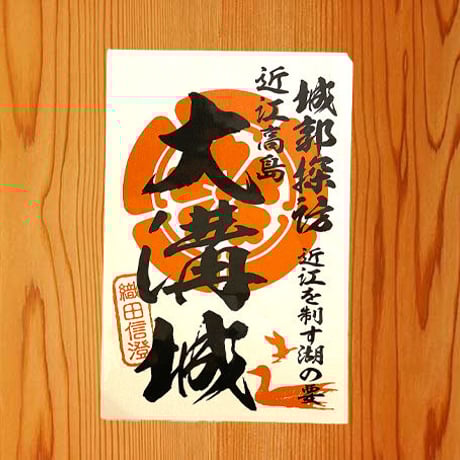 城郭探訪
近江を制す湖の要
近江高島
大溝城
織田信澄